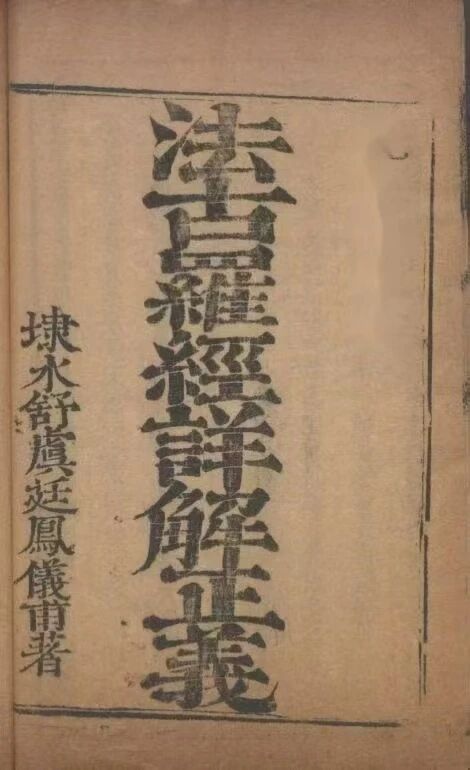 法古羅經詳解正義
埭水舒虞廷鳳儀甫著